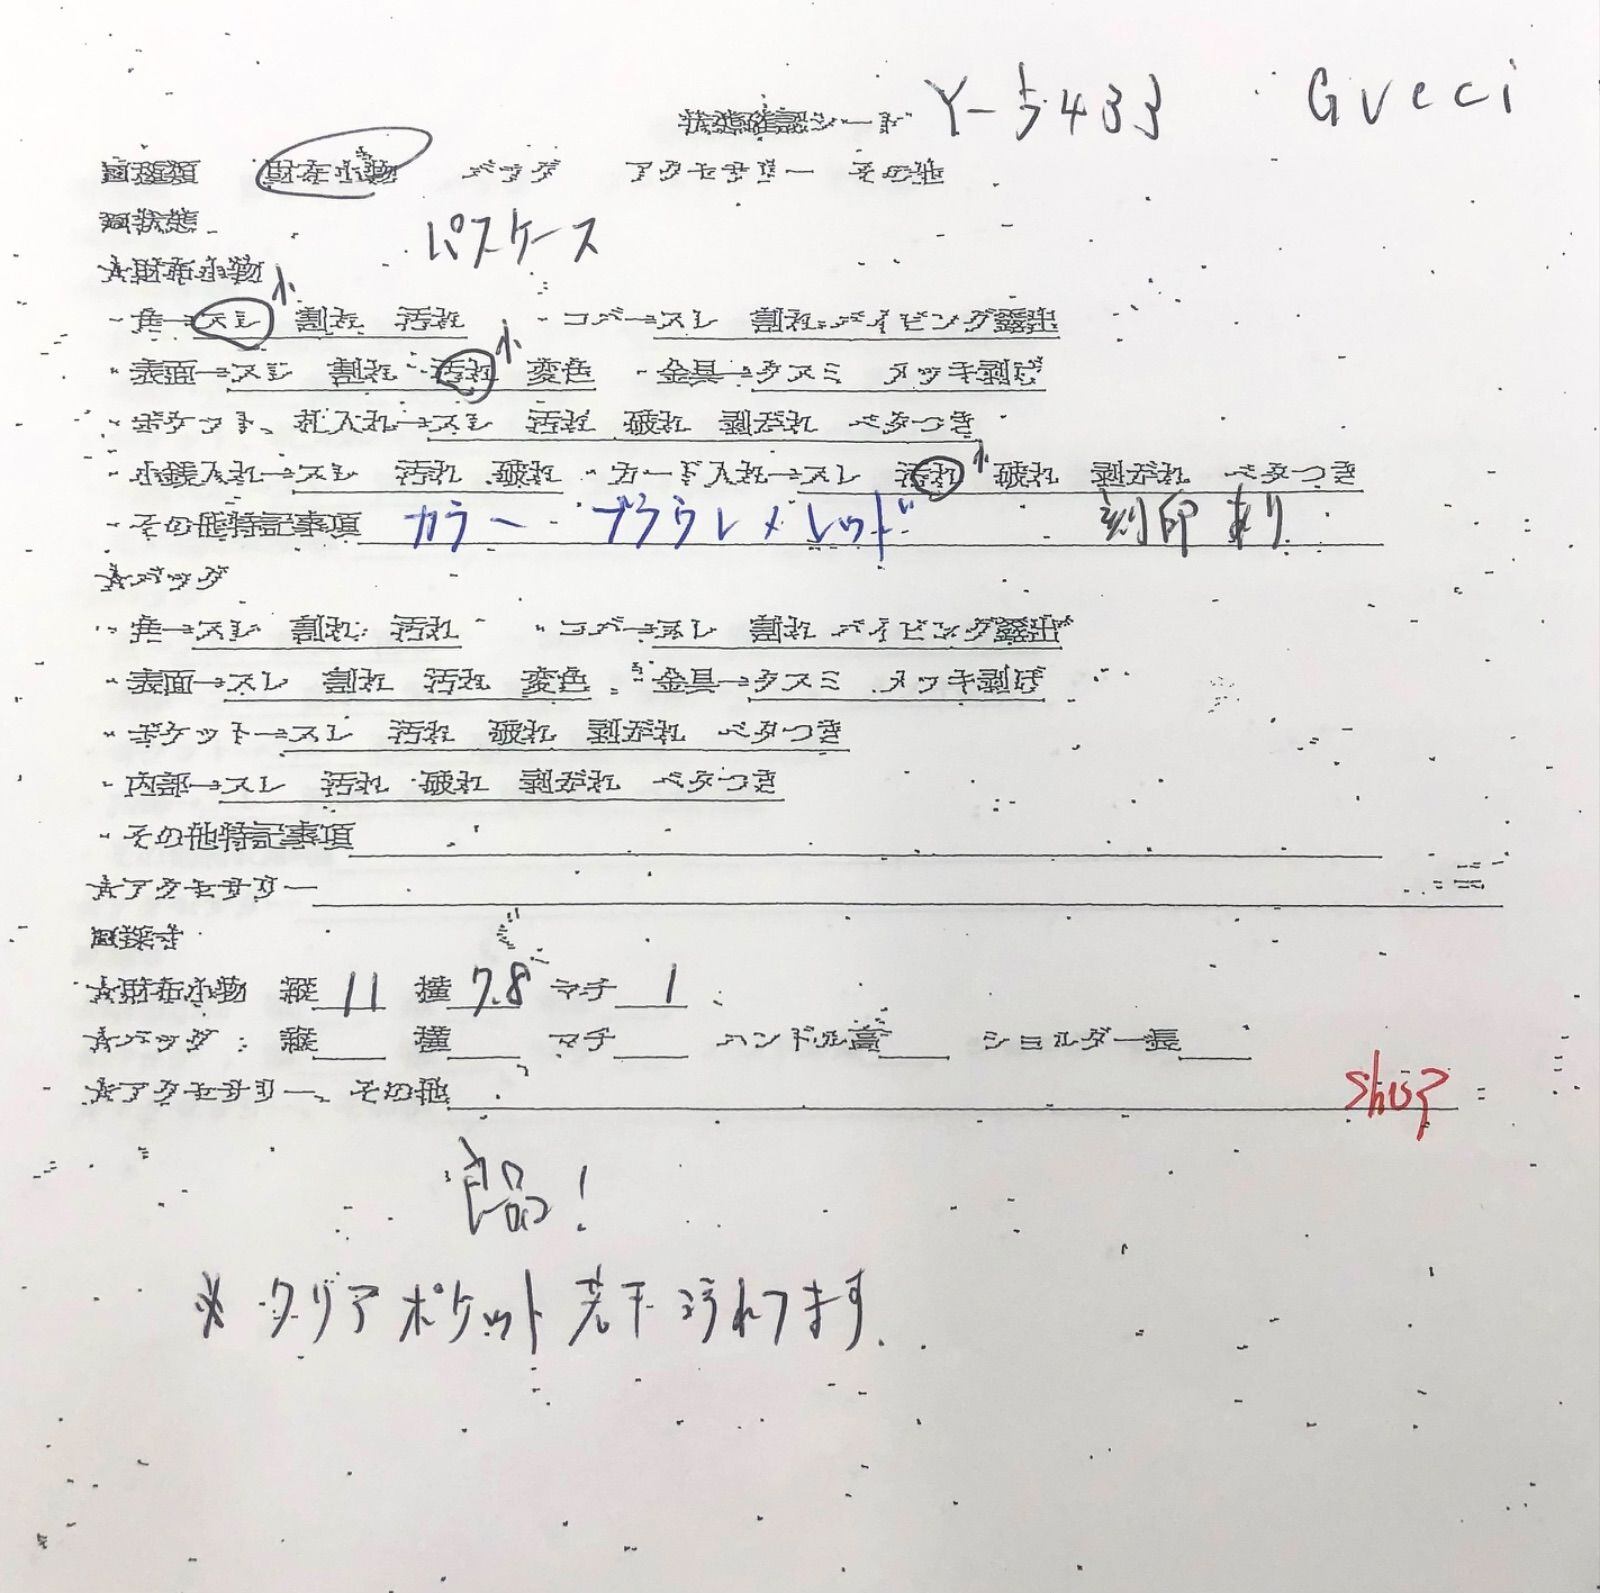 状態確認シート Y-5433 Gucci
■種類 財布小物 バッグ アクセサリー その他
■状態 パスケース
☆財布小物
・角→スレ 小 割れ 汚れ ・コバ→スレ 割れ パイピング露出
・表面→スレ 割れ 汚れ 小 変色 ・金具→クスミ メッキ剥げ
・ポケット、札入れ→スレ 汚れ 破れ 剥がれ ベタつき
・小銭入れ→スレ 汚れ 破れ ・カード入れ→スレ 汚れ 小 破れ 剥がれ ベタつき
・その他特記事項 カラー ブラウン×レッド 刻印あり
☆バッグ
・角→スレ 割れ 汚れ ・コバ→スレ 割れ パイピング露出
・表面→スレ 割れ 汚れ 変色 ・金具→クスミ メッキ剥げ
・ポケット→スレ 汚れ 破れ 剥がれ ベタつき
・内部→スレ 汚れ 破れ 剥がれ ベタつき
・その他特記事項
☆アクセサリー
■採寸
☆財布小物 縦 11 横 7.8 マチ 1
☆バッグ 縦 横 マチ ハンドル高 ショルダー長
☆アクセサリー、その他
良品!
※クリアポケット若干汚れてます.